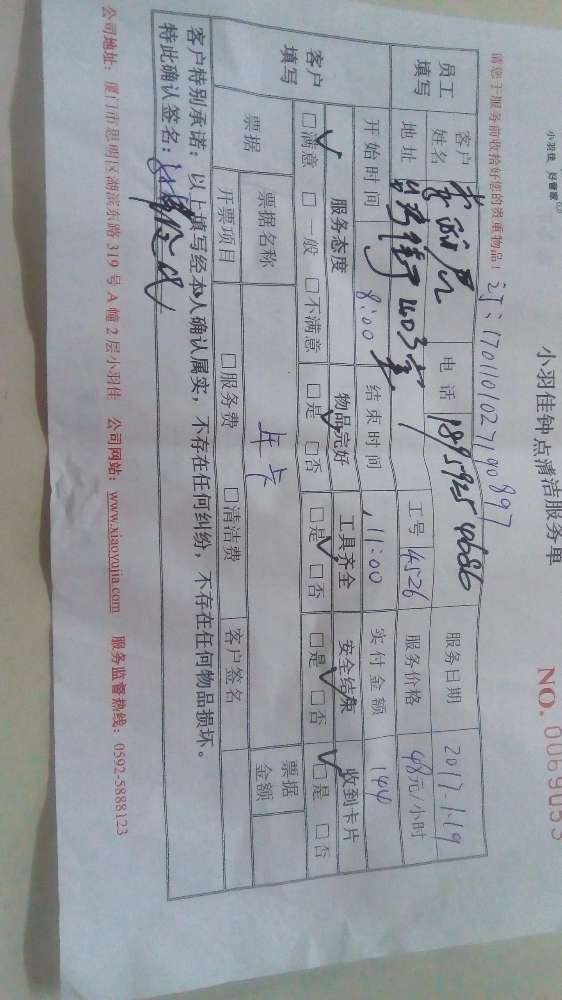 小羽佳 好管家
小羽佳钟点清洁服务单
NO. 0069053
请您于服务前收拾好您的贵重物品！
订：17011010271998 97
员工填写
客户姓名 电话 服务日期 2017.1.19
地址 403室 工号 14526 服务价格 48元/小时
开始时间 8:00 结束时间 11:00 实付金额 144
客户填写
服务态度 物品完好 工具齐全 安全结束 收到卡片
☑满意 □一般 □不满意 ☑是 □否 ☑是 □否 ☑是 □否 ☑是 □否
票据 票据名称 年卡 客户签名 票据金额
开票项目 □服务费 □清洁费
客户特别承诺：以上填写经本人确认属实，不存在任何纠纷，不存在任何物品损坏。
特此确认签名：
公司地址：厦门市思明区湖滨东路 319 号 A 幢 2 层小羽佳 公司网站：www.xiaoyujia.com 服务监督热线：0592-5888123